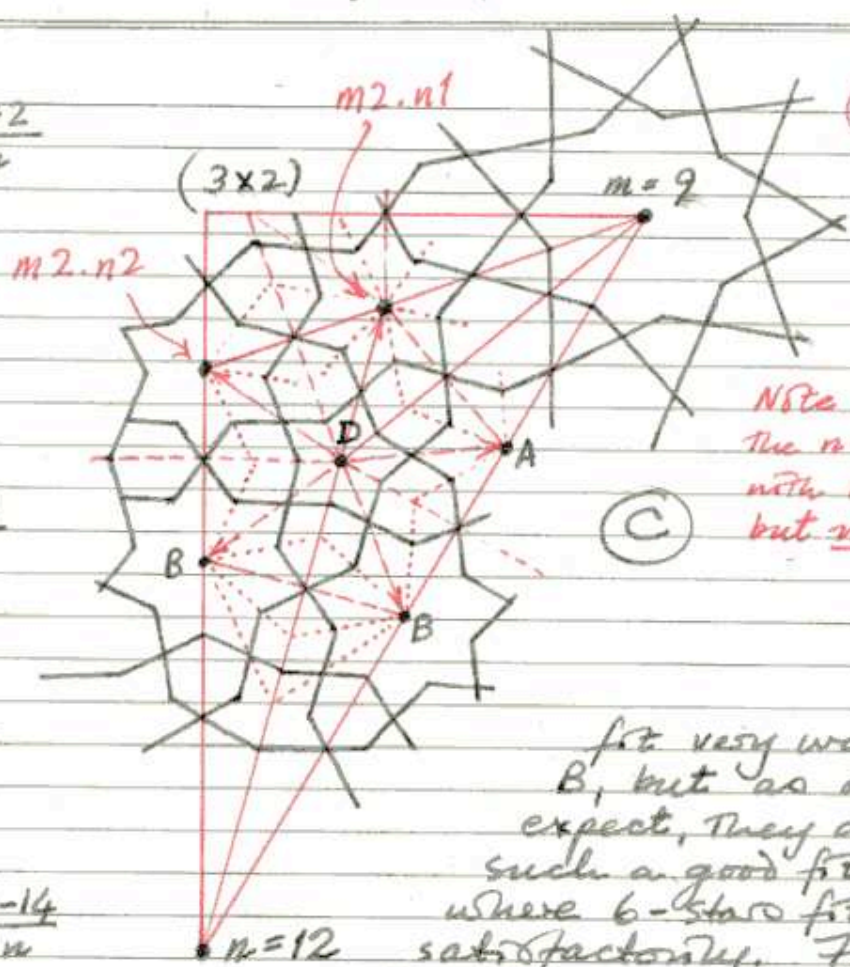 m2.n1
-2
n
(3×2)
m = 9
m2.n2
Note
The n
with
but
D
A
C
B
B
fit very
B, but as
expect, They
such a good fit
where 6-stars
satisfactorily.
-14
n
n=12